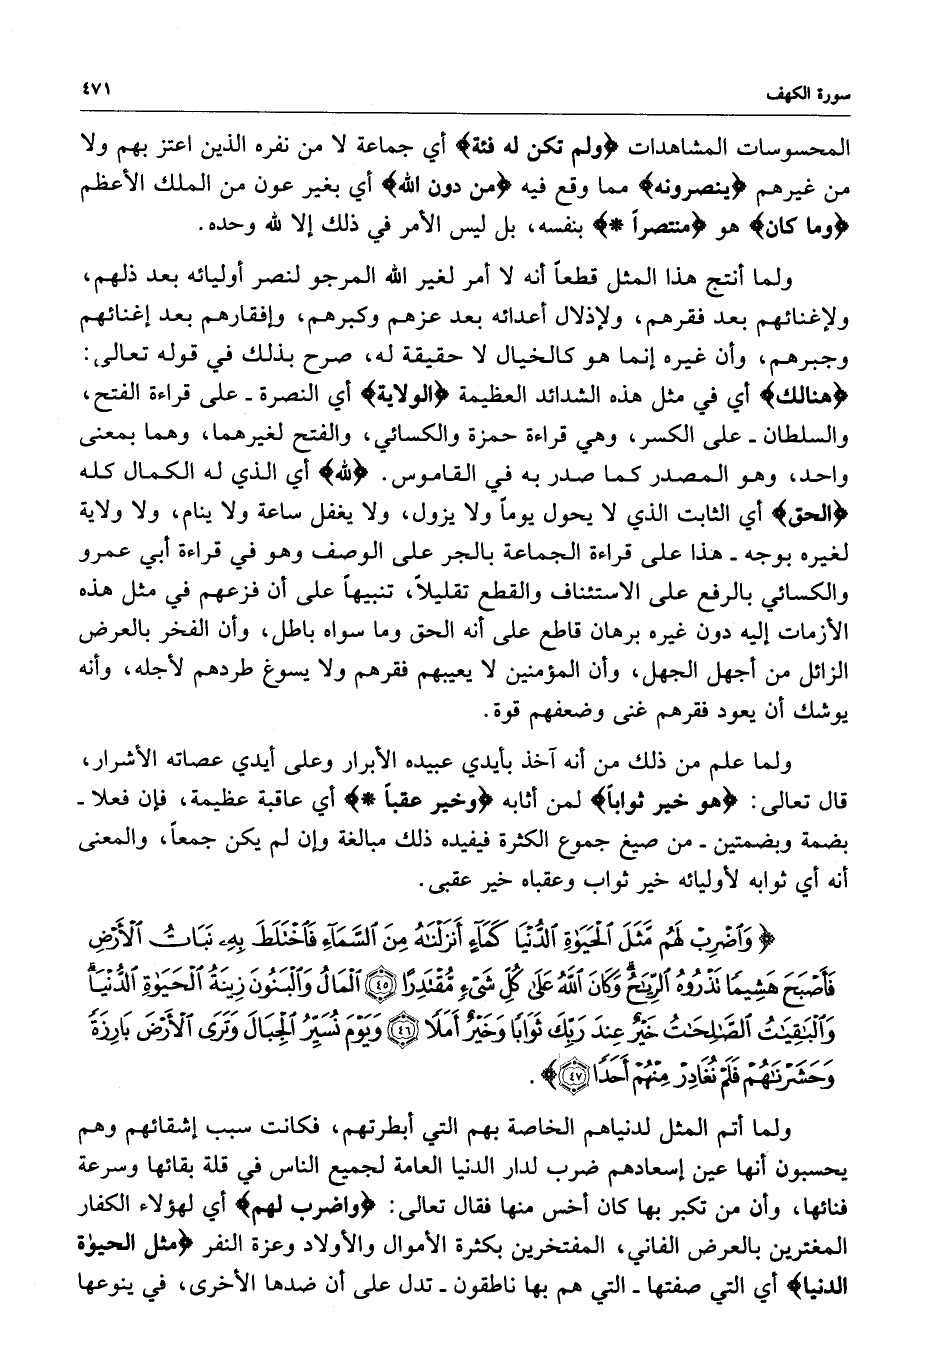 سورة الكهف ٤٧١
المحسوسات المشاهدات ﴿ولم تكن له فئة﴾ أي جماعة لا من نفره الذين اعتز بهم ولا
من غيرهم ﴿ينصرونه﴾ مما وقع فيه ﴿من دون الله﴾ أي بغير عون من الملك الأعظم
﴿وما كان﴾ هو ﴿منتصراً *﴾ بنفسه، بل ليس الأمر في ذلك إلا لله وحده.
ولما أنتج هذا المثل قطعاً أنه لا أمر لغير الله المرجو لنصر أوليائه بعد ذلهم،
ولإغنائهم بعد فقرهم، ولإذلال أعدائه بعد عزهم وكبرهم، وإفقارهم بعد إغنائهم
وجبرهم، وأن غيره إنما هو كالخيال لا حقيقة له، صرح بذلك في قوله تعالى:
﴿هنالك﴾ أي في مثل هذه الشدائد العظيمة ﴿الولاية﴾ أي النصرة ـ على قراءة الفتح،
والسلطان ـ على الكسر، وهي قراءة حمزة والكسائي، والفتح لغيرهما، وهما بمعنى
واحد، وهو المصدر كما صدر به في القاموس. ﴿لله﴾ أي الذي له الكمال كله
﴿الحق﴾ أي الثابت الذي لا يحول يوماً ولا يزول، ولا يغفل ساعة ولا ينام، ولا ولاية
لغيره بوجه ـ هذا على قراءة الجماعة بالجر على الوصف وهو في قراءة أبي عمرو
والكسائي بالرفع على الاستئناف والقطع تقليلاً، تنبيهاً على أن فزعهم في مثل هذه
الأزمات إليه دون غيره برهان قاطع على أنه الحق وما سواه باطل، وأن الفخر بالعرض
الزائل من أجهل الجهل، وأن المؤمنين لا يعيبهم فقرهم ولا يسوغ طردهم لأجله، وأنه
يوشك أن يعود فقرهم غنى وضعفهم قوة.
ولما علم من ذلك من أنه آخذ بأيدي عبيده الأبرار وعلى أيدي عصاته الأشرار،
قال تعالى: ﴿هو خير ثواباً﴾ لمن أثابه ﴿وخير عقباً *﴾ أي عاقبة عظيمة، فإن فعلا ـ
بضمة وبضمتين ـ من صيغ جموع الكثرة فيفيده ذلك مبالغة وإن لم يكن جمعاً، والمعنى
أنه أي ثوابه لأوليائه خير ثواب وعقباه خير عقبى.
﴿ وَٱضۡرِبۡ لَهُم مَّثَلَ ٱلۡحَيَوٰةِ ٱلدُّنۡيَا كَمَآءٍ أَنزَلۡنَٰهُ مِنَ ٱلسَّمَآءِ فَٱخۡتَلَطَ بِهِۦ نَبَاتُ ٱلۡأَرۡضِ
فَأَصۡبَحَ هَشِيمٗا تَذۡرُوهُ ٱلرِّيَٰحُۗ وَكَانَ ٱللَّهُ عَلَىٰ كُلِّ شَيۡءٖ مُّقۡتَدِرًا ﴿٤٥﴾ ٱلۡمَالُ وَٱلۡبَنُونَ زِينَةُ ٱلۡحَيَوٰةِ ٱلدُّنۡيَاۖ
وَٱلۡبَٰقِيَٰتُ ٱلصَّٰلِحَٰتُ خَيۡرٌ عِندَ رَبِّكَ ثَوَابٗا وَخَيۡرٌ أَمَلٗا ﴿٤٦﴾ وَيَوۡمَ نُسَيِّرُ ٱلۡجِبَالَ وَتَرَى ٱلۡأَرۡضَ بَارِزَةٗ
وَحَشَرۡنَٰهُمۡ فَلَمۡ نُغَادِرۡ مِنۡهُمۡ أَحَدٗا ﴿٤٧﴾﴾.
ولما أتم المثل لدنياهم الخاصة بهم التي أبطرتهم، فكانت سبب إشقائهم وهم
يحسبون أنها عين إسعادهم ضرب لدار الدنيا العامة لجميع الناس في قلة بقائها وسرعة
فنائها، وأن من تكبر بها كان أخس منها فقال تعالى: ﴿واضرب لهم﴾ أي لهؤلاء الكفار
المغترين بالعرض الفاني، المفتخرين بكثرة الأموال والأولاد وعزة النفر ﴿مثل الحيوٰة
الدنيا﴾ أي التي صفتها ـ التي هم بها ناطقون ـ تدل على أن ضدها الأخرى، في ينوعها